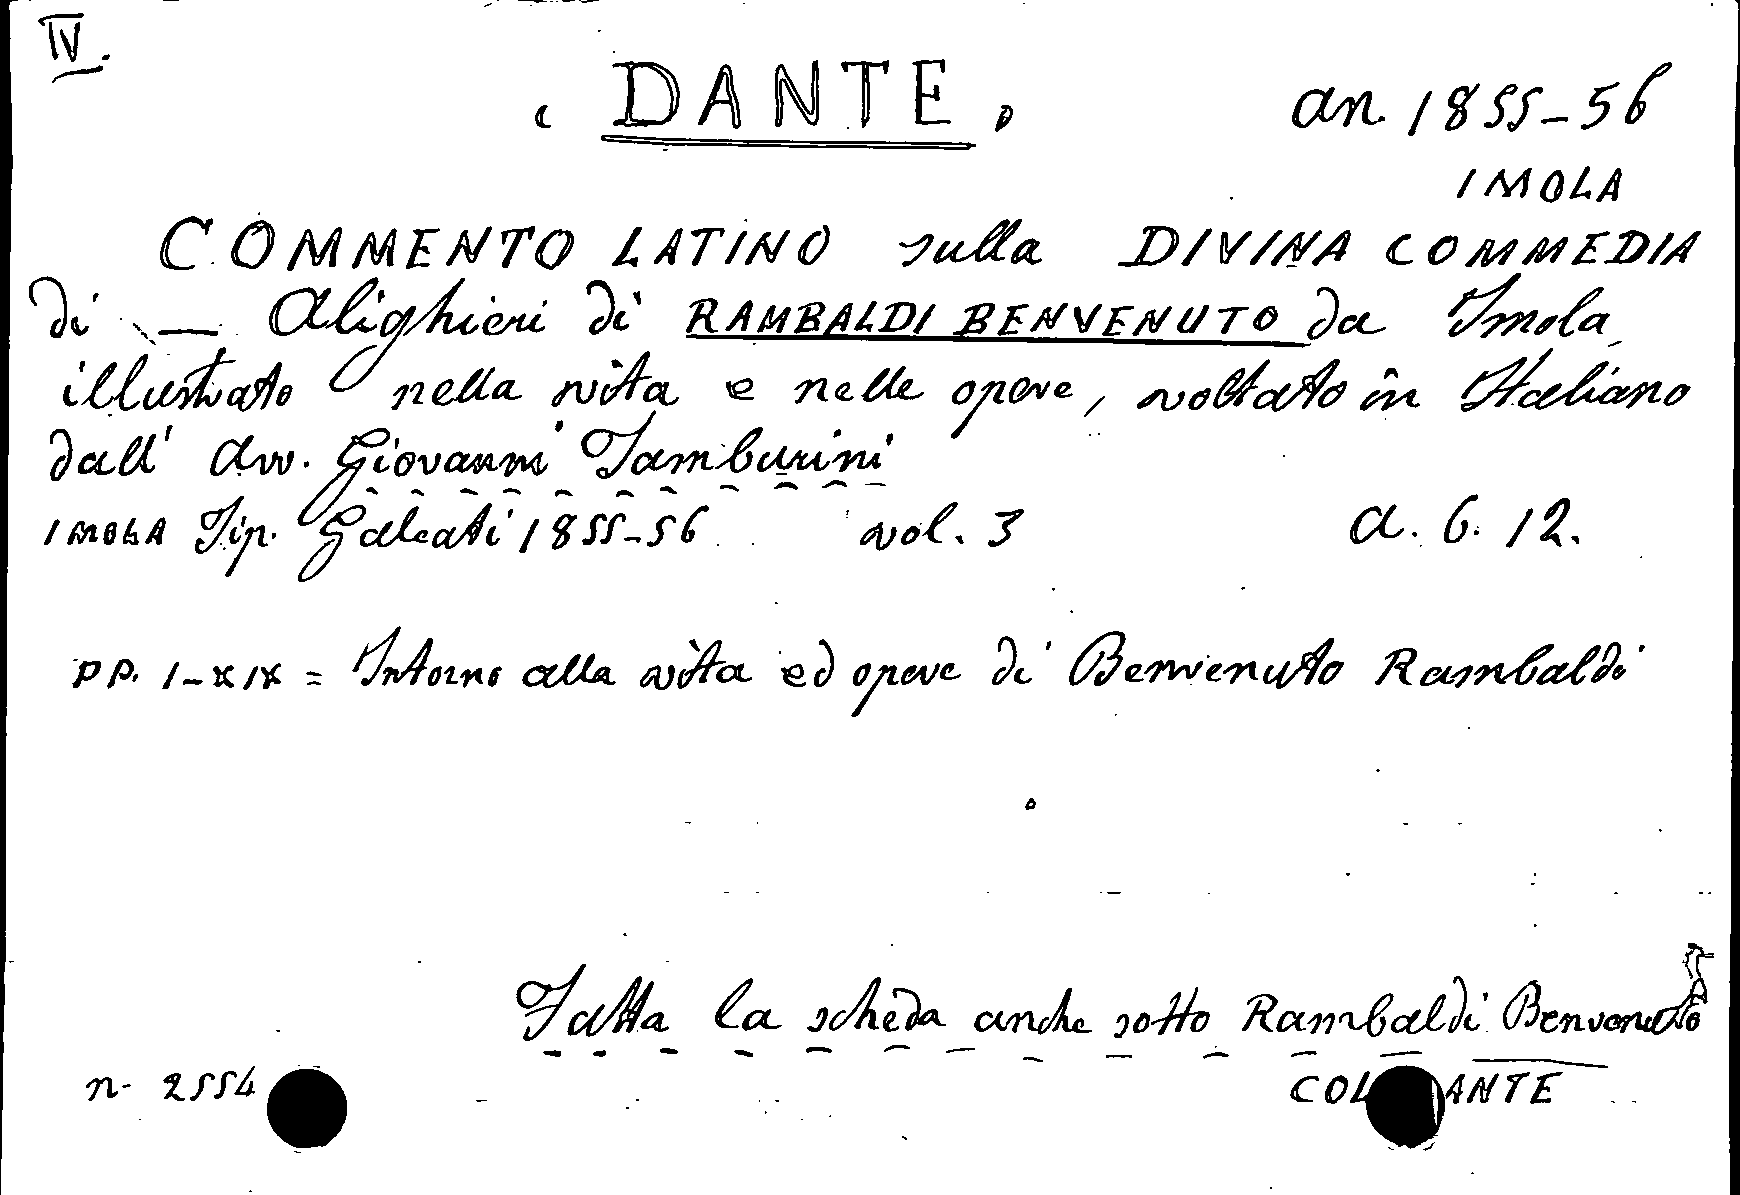 IV.
( DANTE )
an. 1855-56
IMOLA
COMMENTO LATINO sulla DIVINA COMMEDIA
di — Alighieri di RAMBALDI BENVENUTO da Imola
illustrato nella vita e nelle opere, voltato in Italiano
dall' Avv. Giovanni Tamburini
IMOLA Tip. Galeati 1855-56 vol. 3 a. 6. 12.
pp. I-XIX = Intorno alla vita ed opere di Benvenuto Rambaldi
Fatta la scheda anche sotto Rambaldi Benvenuto
n. 2554 COL ANTE